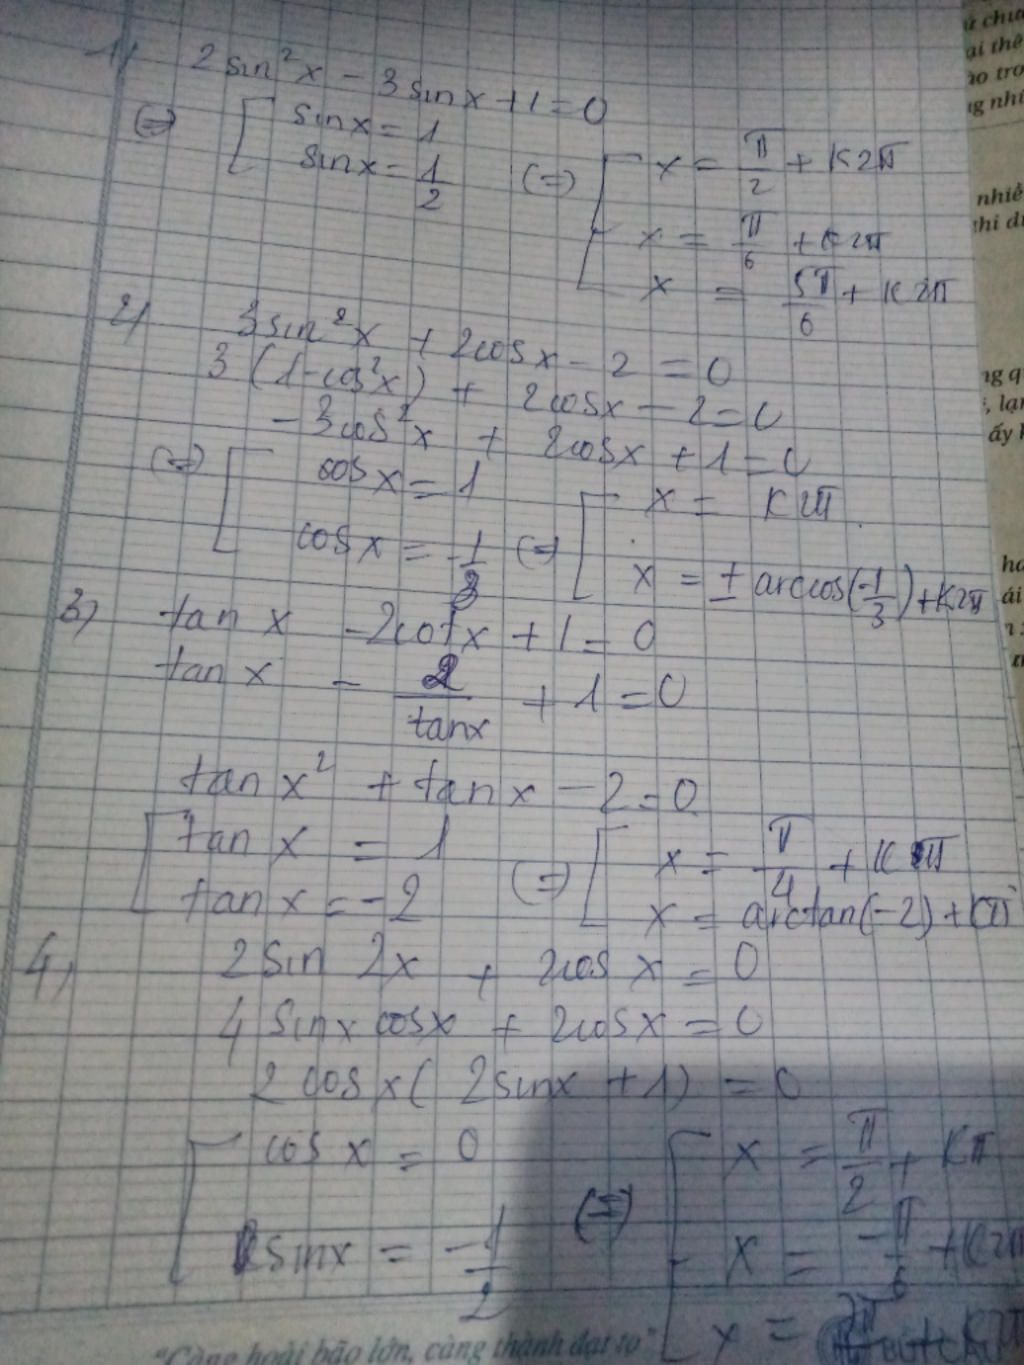 1) 2 sin²x - 3 sin x + 1 = 0
(=) [ sin x = 1
sin x = 1/2 (=) [ x = π/2 + k2π
x = π/6 + k2π
x = 5π/6 + k2π
2) 3sin²x + 2cosx - 2 = 0
3 (1-cos²x) + 2cosx - 2 = 0
- 3cos²x + 2cosx + 1 = 0
(=) [ cos x = 1
cos x = -1/3 (=) [ x = k2π
x = ± arccos(-1/3) + k2π
3) tan x - 2cot x + 1 = 0
tan x - 2/tanx + 1 = 0
tan x² + tan x - 2 = 0
[ tan x = 1
tan x = -2 (=) [ x = π/4 + kπ
x = arctan(-2) + kπ
4) 2 sin 2x + 2cos x = 0
4 sinx cosx + 2cosx = 0
2 cos x ( 2sinx + 1) = 0
[ cos x = 0
sinx = -1/2 (=) [ x = π/2 + kπ
x = -π/6 + k2π
x = + k2π
"Càng hoài bão lớn, càng thành đạt to"
nhiề
ấy